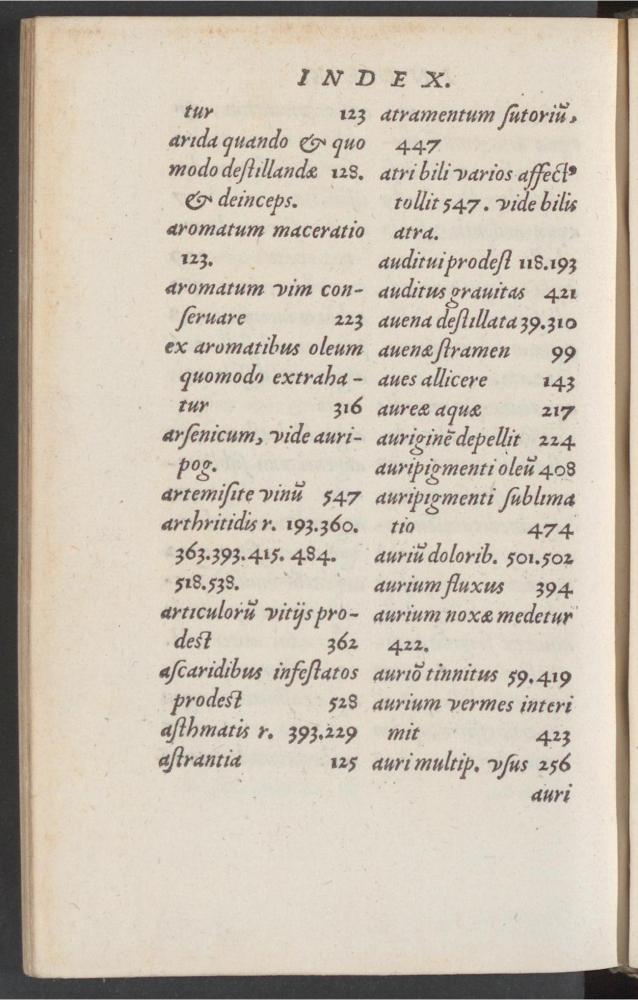 INDEX.
tur 123
arida quando & quo
modo deſtillandæ 128.
& deinceps.
aromatum maceratio
123.
aromatum vim con-
ſeruare 223
ex aromatibus oleum
quomodo extraha-
tur 316
arſenicum, vide auri-
pog.
artemiſite vinū 547
arthritidis r. 193.360.
363.393.415.484.
518.538.
articulorū vitijs pro-
dest 362
aſcaridibus infeſtatos
prodest 528
aſthmatis r. 393.229
aſtrantia 125
atramentum ſutoriū,
447
atri bili varios affectꝰ
tollit 547. vide bilis
atra.
auditui prodeſt 118.193
auditus grauitas 421
auena deſtillata 39.310
auenæ ſtramen 99
aues allicere 143
aureæ aquæ 217
auriginē depellit 224
auripigmenti oleū 408
auripigmenti ſublima
tio 474
auriū dolorib. 501.502
aurium fluxus 394
aurium noxæ medetur
422.
auriō tinnitus 59.419
aurium vermes interi
mit 423
auri multip. vſus 256
auri